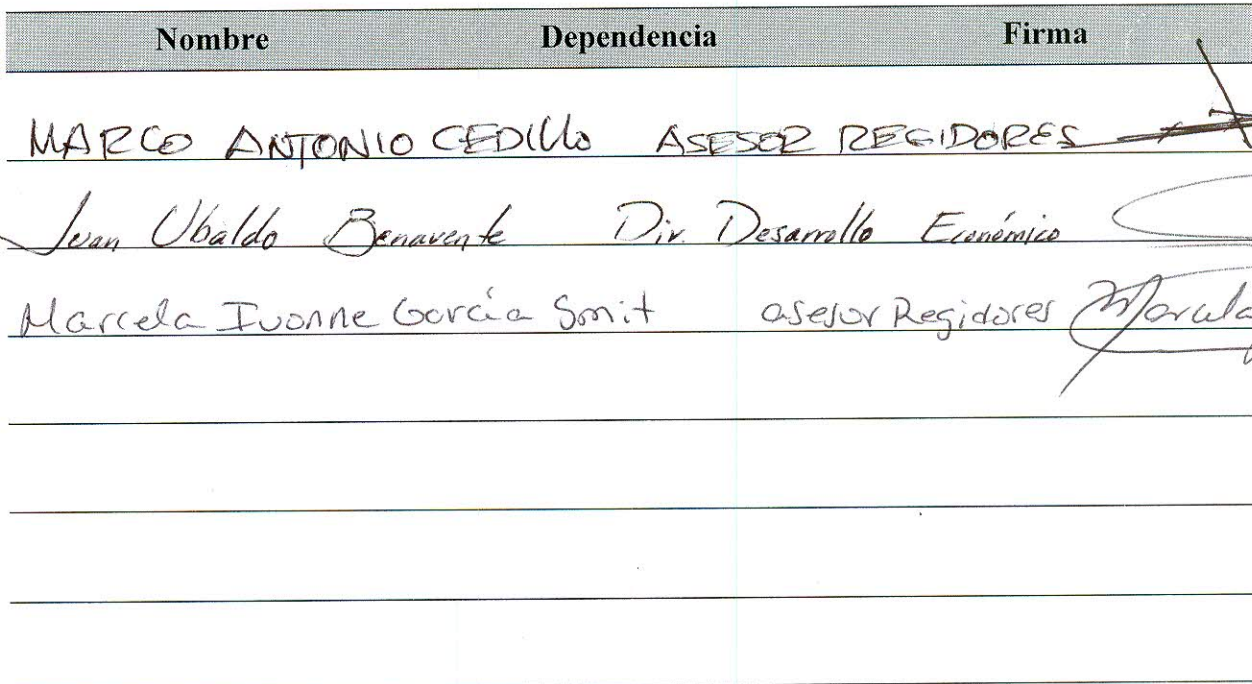 Nombre Dependencia Firma
MARCO ANTONIO CEDILLO ASESOR REGIDORES
Juan Ubaldo Benavente Dir. Desarrollo Económico
Marcela Ivonne García Smit asesor Regidores Marcela